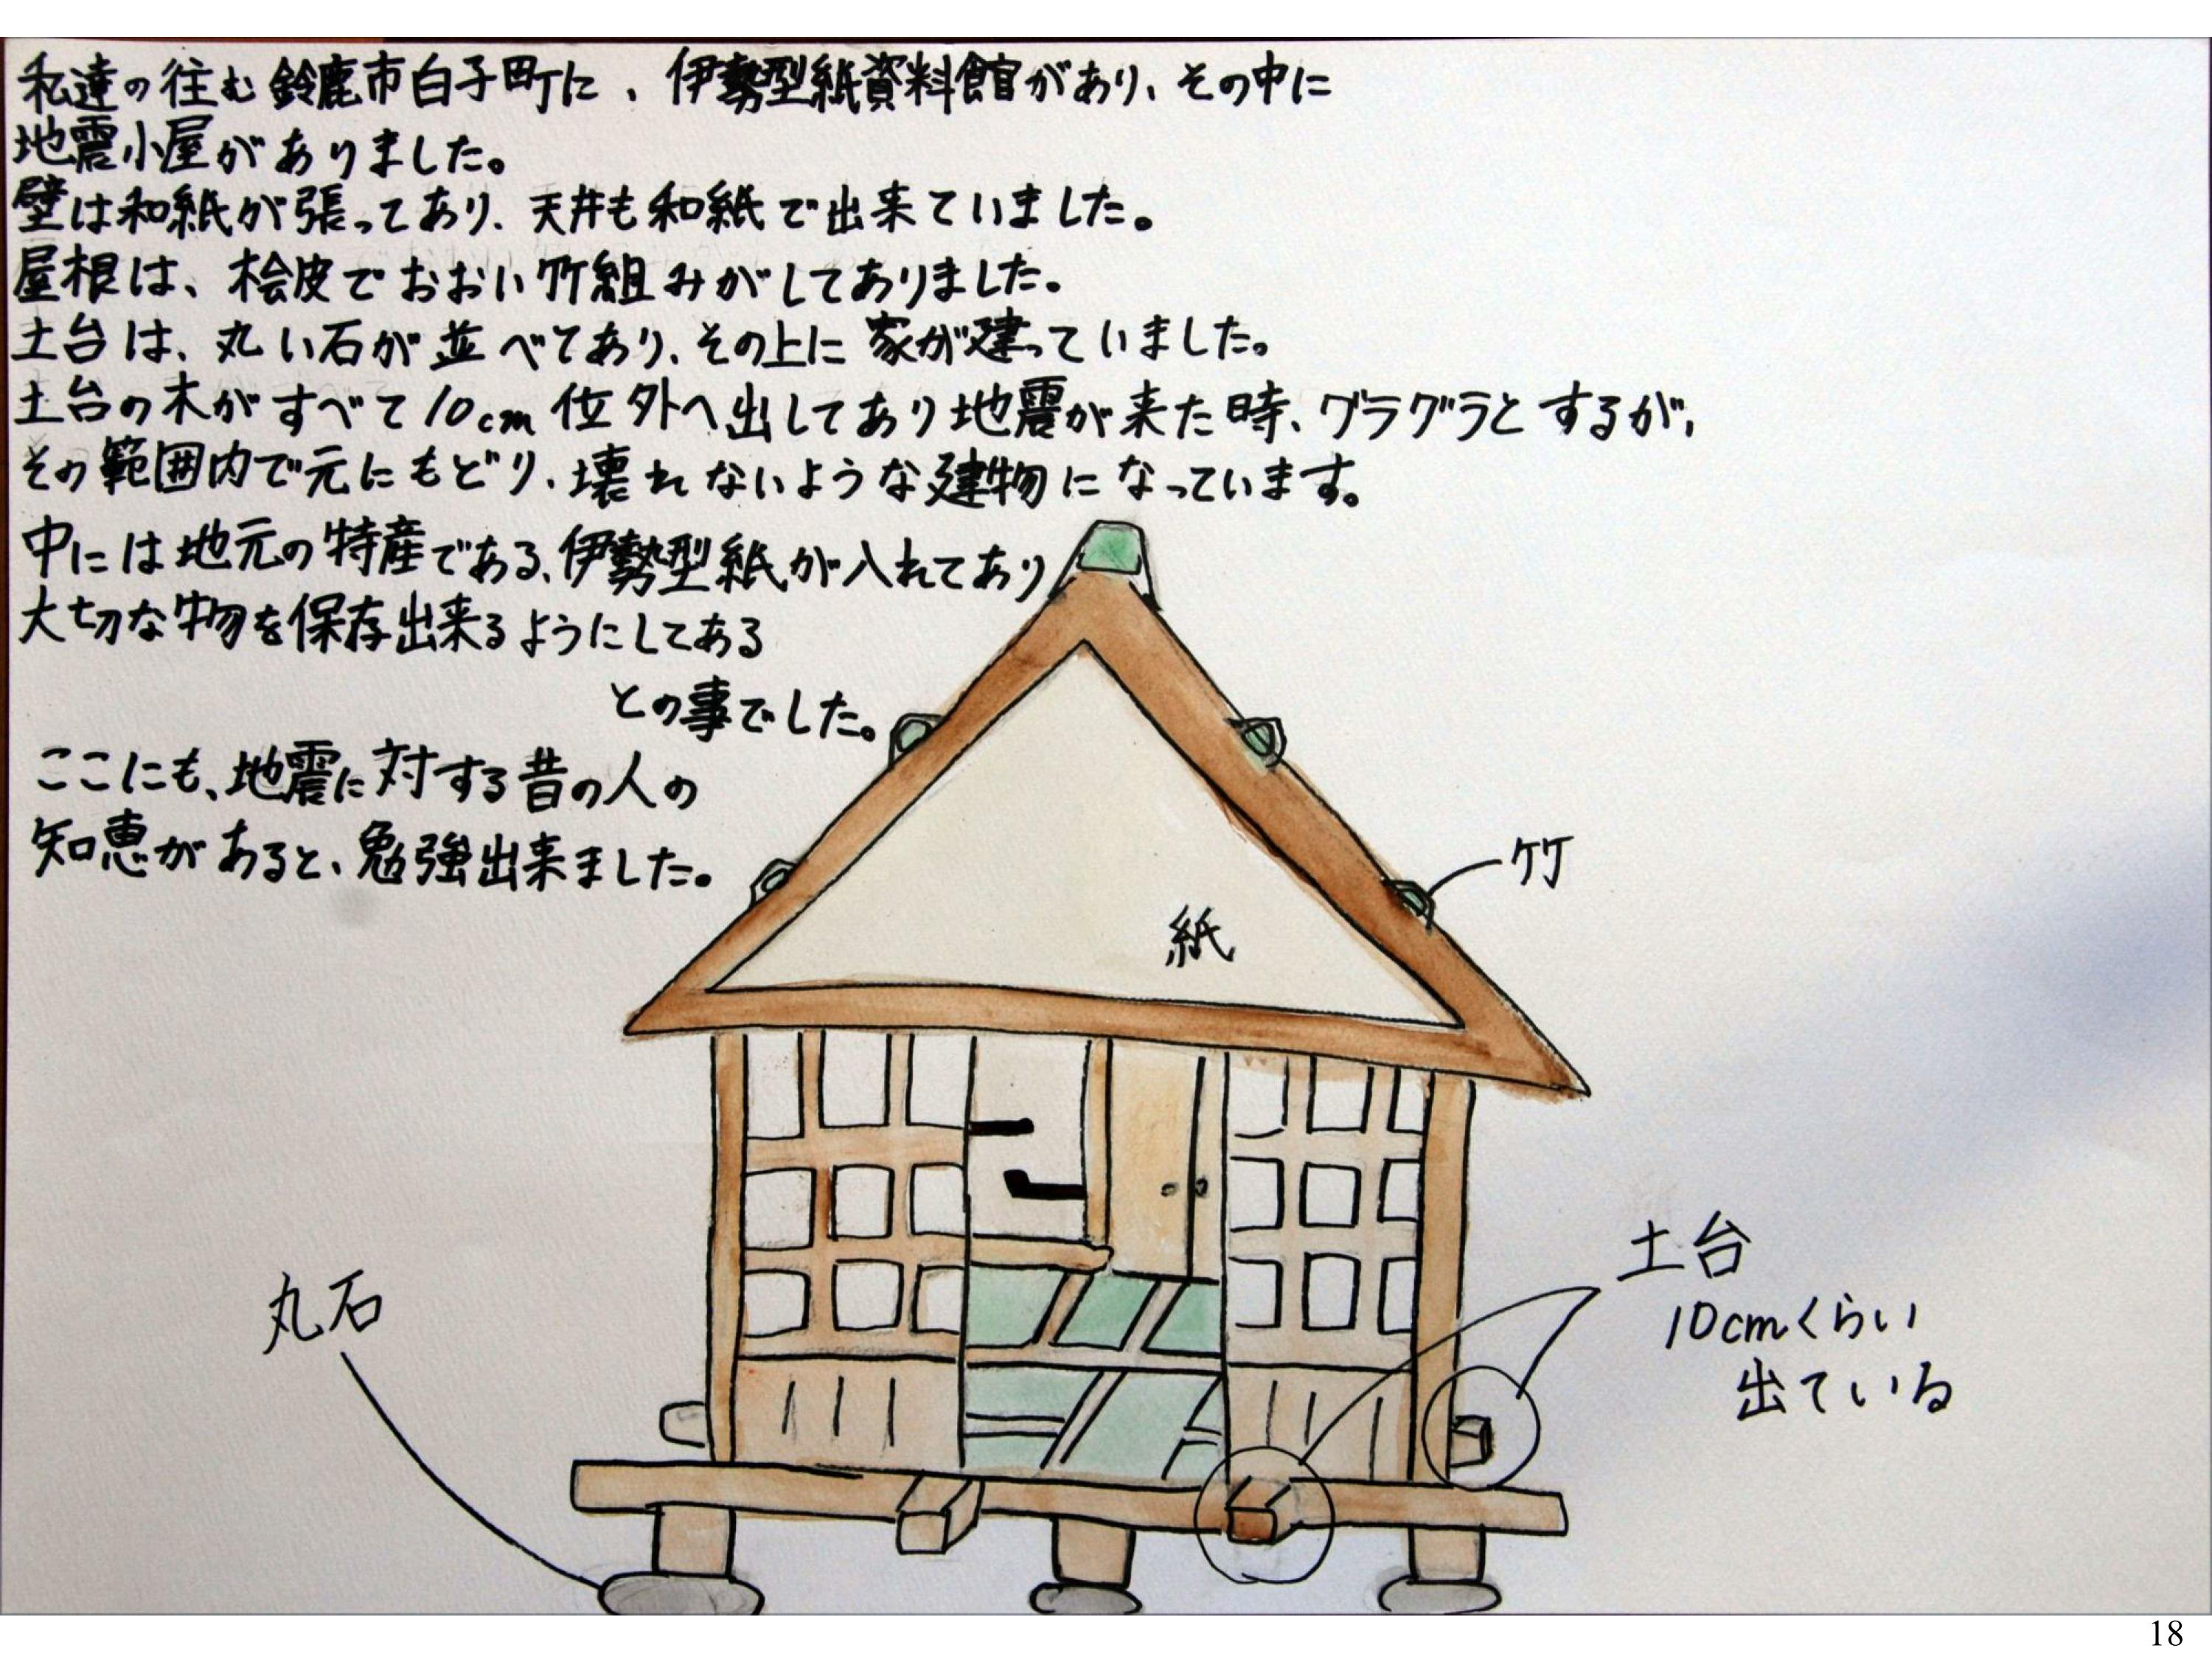 私達の住む鈴鹿市白子町に、伊勢型紙資料館があり、その中に
地震小屋がありました。
壁は和紙が張ってあり、天井も和紙で出来ていました。
屋根は、桧皮でおおい竹組みがしてありました。
土台は、丸い石が並べてあり、その上に家が建っていました。
土台の木がすべて10cm位外へ出してあり地震が来た時、グラグラとするが、
その範囲内で元にもどり、壊れないような建物になっています。
中には地元の特産である、伊勢型紙が入れてあり
大切な物を保存出来るようにしてある
との事でした。
ここにも、地震に対する昔の人の
知恵があると、勉強出来ました。
竹
紙
土台
10cmくらい
出ている
丸石
18